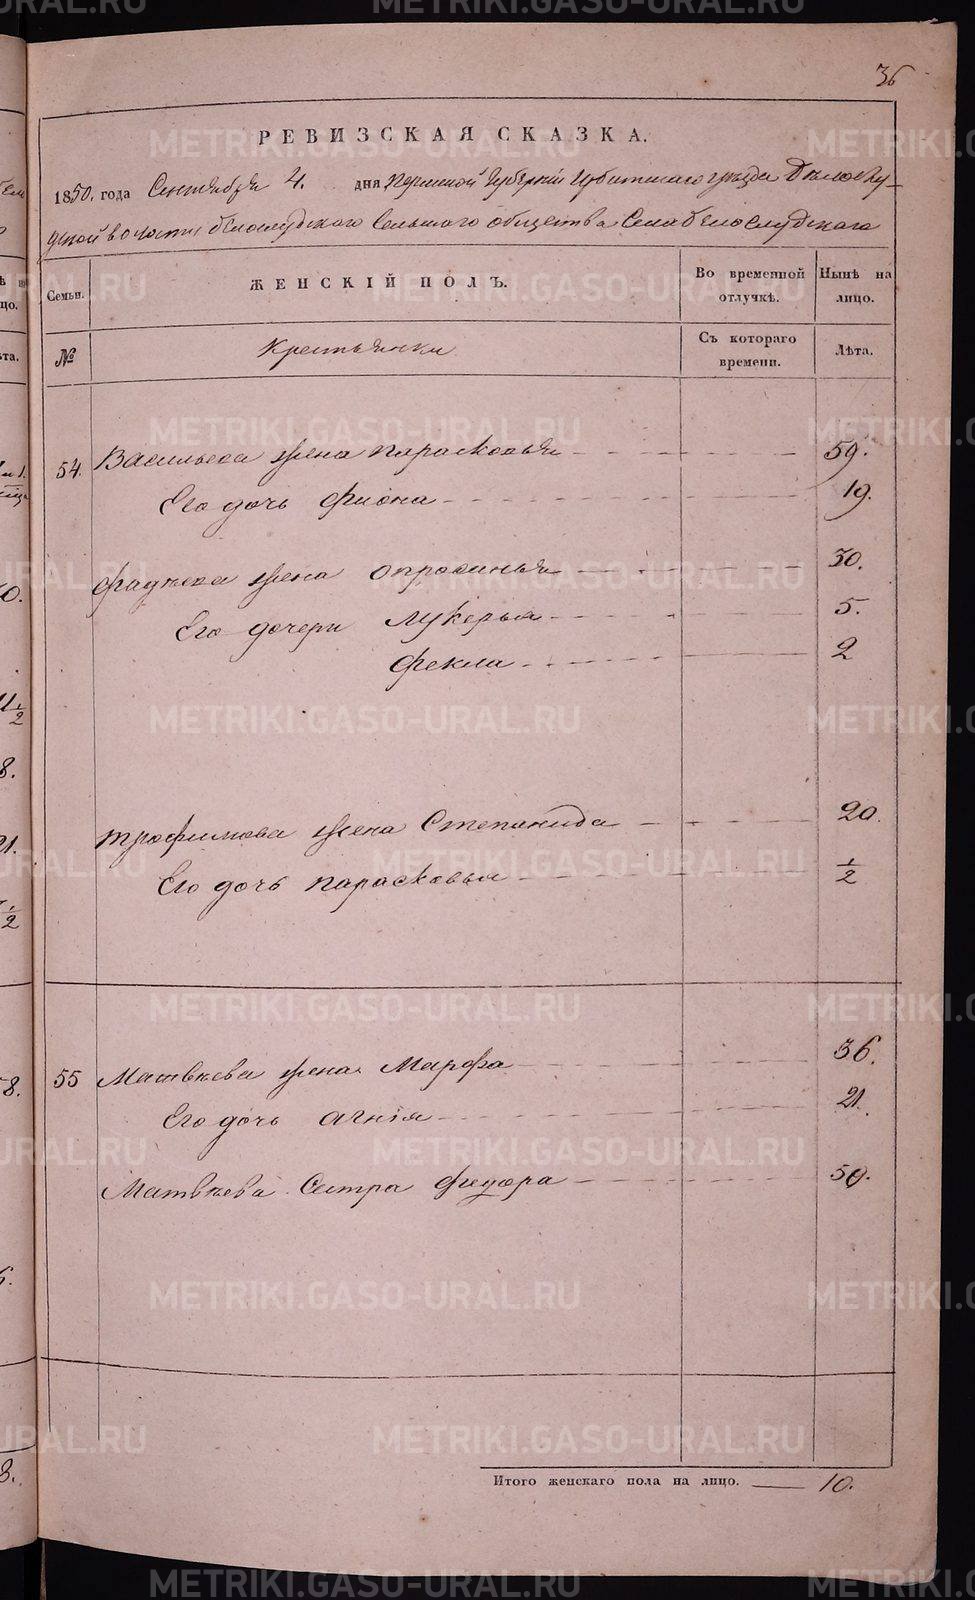 36
РЕВИЗСКАЯ СКАЗКА.
1850. года Сентября 4. дня Пермской Губернии Ирбитского уезда Белослу-
дской волости Белослудского Сельского общества Села Белослудского
Семьи. ЖЕНСКІЙ ПОЛЪ. Во временной отлучкѣ. Нынѣ на лицо.
№ Крестьянки Съ котораго времени. Лѣта.
54. Васильева жена Парасковья 59.
Его дочь Фиона 19.
Фадѣева жена Опросинья 30.
Его дочери Лукерья 5.
Фекла 2
Трофимова жена Степанида 20.
Его дочь Парасковья 1/2
55 Матвѣева жена Марфа 36.
Его дочь Агнія 21.
Матвѣева Сестра Федора 50.
Итого женскаго пола на лицо. 10.
METRIKI.GASO-URAL.RU